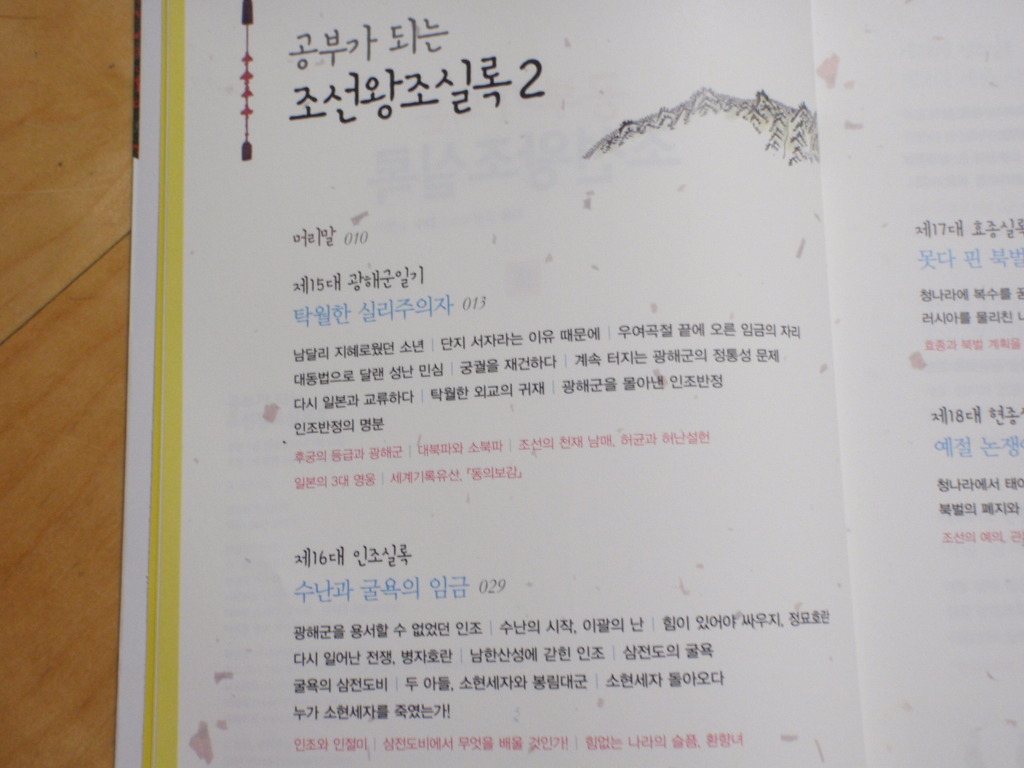 공부가 되는
조선왕조실록 2
머리말 010
제15대 광해군일기
탁월한 실리주의자 013
남달리 지혜로웠던 소년 | 단지 서자라는 이유 때문에 | 우여곡절 끝에 오른 임금의 자리
대동법으로 달랜 성난 민심 | 궁궐을 재건하다 | 계속 터지는 광해군의 정통성 문제
다시 일본과 교류하다 | 탁월한 외교의 귀재 | 광해군을 몰아낸 인조반정
인조반정의 명분
후궁의 등급과 광해군 | 대북파와 소북파 | 조선의 천재 남매, 허균과 허난설헌
일본의 3대 영웅 | 세계기록유산, 『동의보감』
제16대 인조실록
수난과 굴욕의 임금 029
광해군을 용서할 수 없었던 인조 | 수난의 시작, 이괄의 난 | 힘이 있어야 싸우지, 정묘호란
다시 일어난 전쟁, 병자호란 | 남한산성에 갇힌 인조 | 삼전도의 굴욕
굴욕의 삼전도비 | 두 아들, 소현세자와 봉림대군 | 소현세자 돌아오다
누가 소현세자를 죽였는가!
인조와 인절미 | 삼전도비에서 무엇을 배울 것인가! | 힘없는 나라의 슬픔, 환향녀
제17대 효종실록
못다 핀 북벌
청나라에 복수를
러시아를 물리친
효종과 북벌 계획을
제18대
예절 논쟁
청나라에서
북벌의 폐지와
조선의 예의,